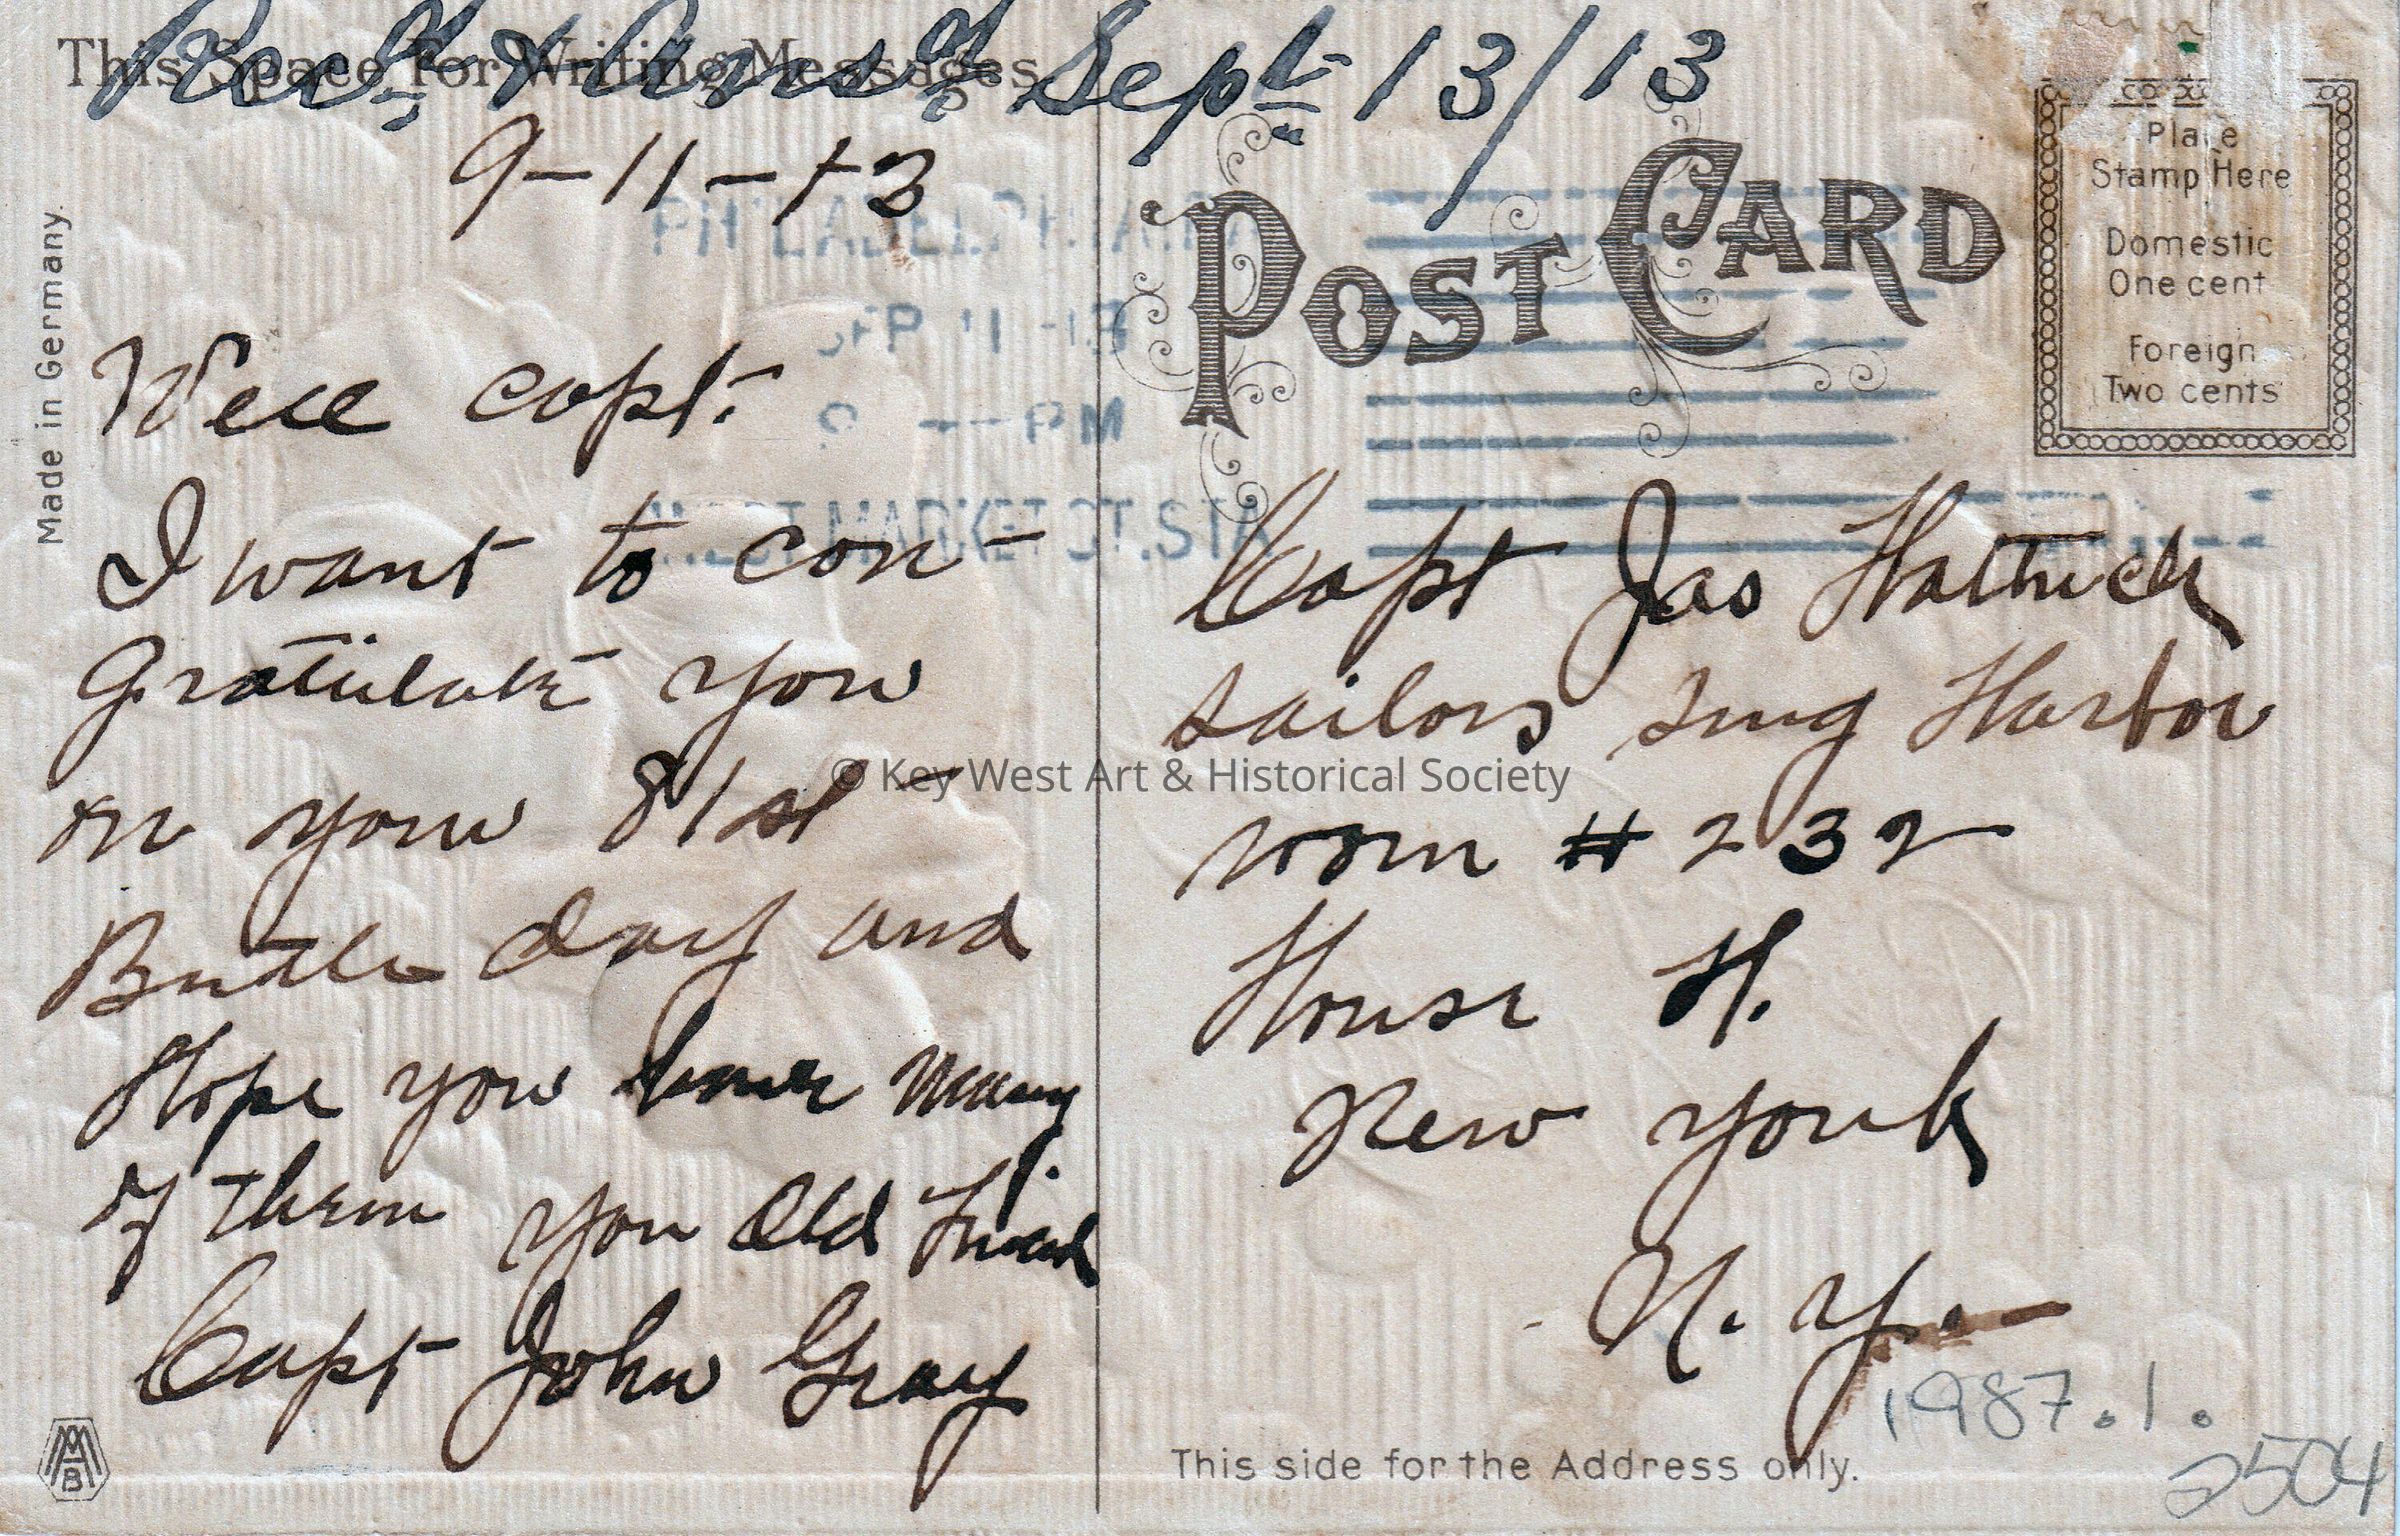 Rec'd & Ans'd Sept 13/13
This Space For Writing Messages
9-11-13
Well capt.
I want to con-
gratulate you
on your 81st
Birth day and
Hope you have many
of them you old Friend
Capt John Gray
Made in Germany.
PHILADELPHIA, PA
SEP 11 -13
PM
MARKET ST. STA
POST CARD
Place
Stamp Here
Domestic
One cent
Foreign
Two cents
Capt Jas
sailors snug Harbor
room # 232
House H.
New York
N. Y.
This side for the Address only.
1987.1.
2504
MAB
© Key West Art & Historical Society